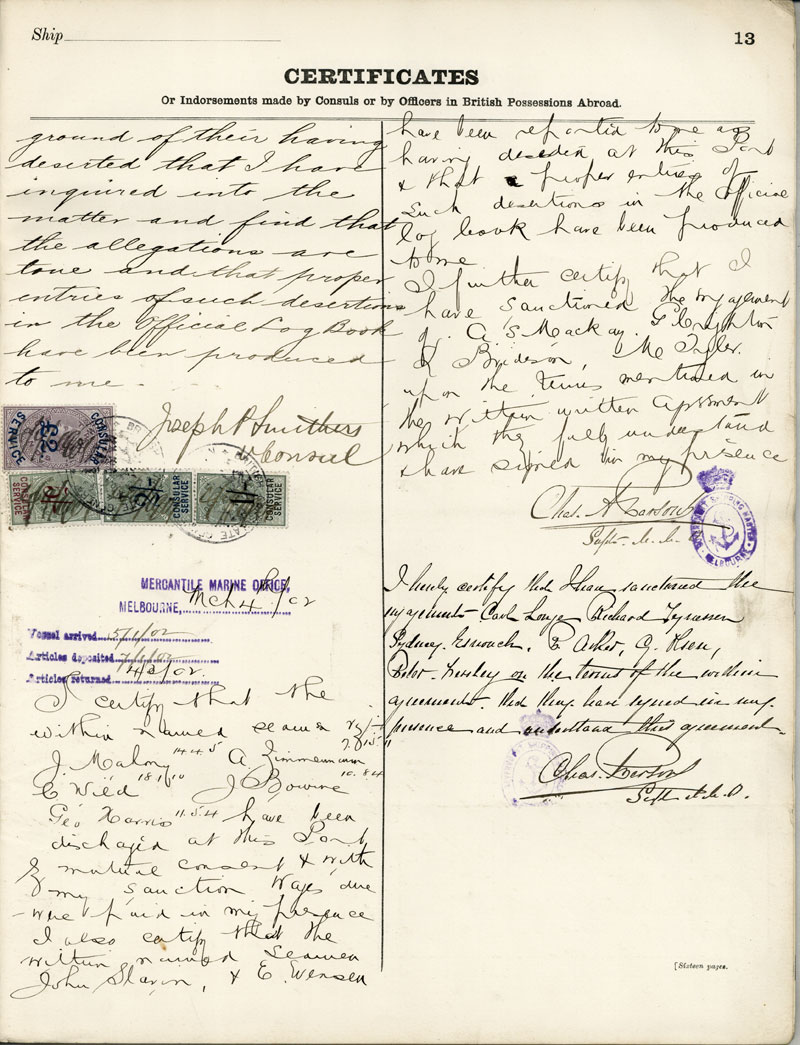 Ship
13
CERTIFICATES
Or Indorsements made by Consuls or by Officers in British Possessions Abroad.
ground of their having
deserted that I have
inquired into the
matter and find that
the allegations are
true and that proper
entries of such desertions
in the Official Log Book
have been produced
to me.
Joseph P Smithers
V Consul
CONSULAR SERVICE
CONSULAR SERVICE
CONSULAR SERVICE
CONSULAR SERVICE
MERCANTILE MARINE OFFICE,
MELBOURNE, Mch 4th/02
Vessel arrived 15/1/02
Articles deposited
Articles returned 4/3/02
I certify that the
within named seamen
J. Malony A. Zimmermann
C Wild 18/1/10 J Bowne 10.84
Geo Harris 11.5.4 have been
discharged at this Port
by mutual consent & with
my sanction Wages due
were paid in my presence
I also certify that the
within named Seamen
John Slavin, & E. Wensen
have been reported to me as
having deserted at this Port
& that proper entries of
such desertions in the Official
log book have been produced
to me
I further certify that I
have sanctioned the engagement
of A S Mackay. G Crighton
R Brideson,
upon the terms mentioned in
the within written agreement
which they fully understand
& have signed in my presence
Chas. A
MELBOURNE
I hereby certify that I have sanctioned the
engagement Carl Richard
Sydney. E Asker, O. Olsen,
Peter. on the terms of the within
agreement. that they have signed in my
presence and understand this agreement
Chas.
[Sixteen pages.